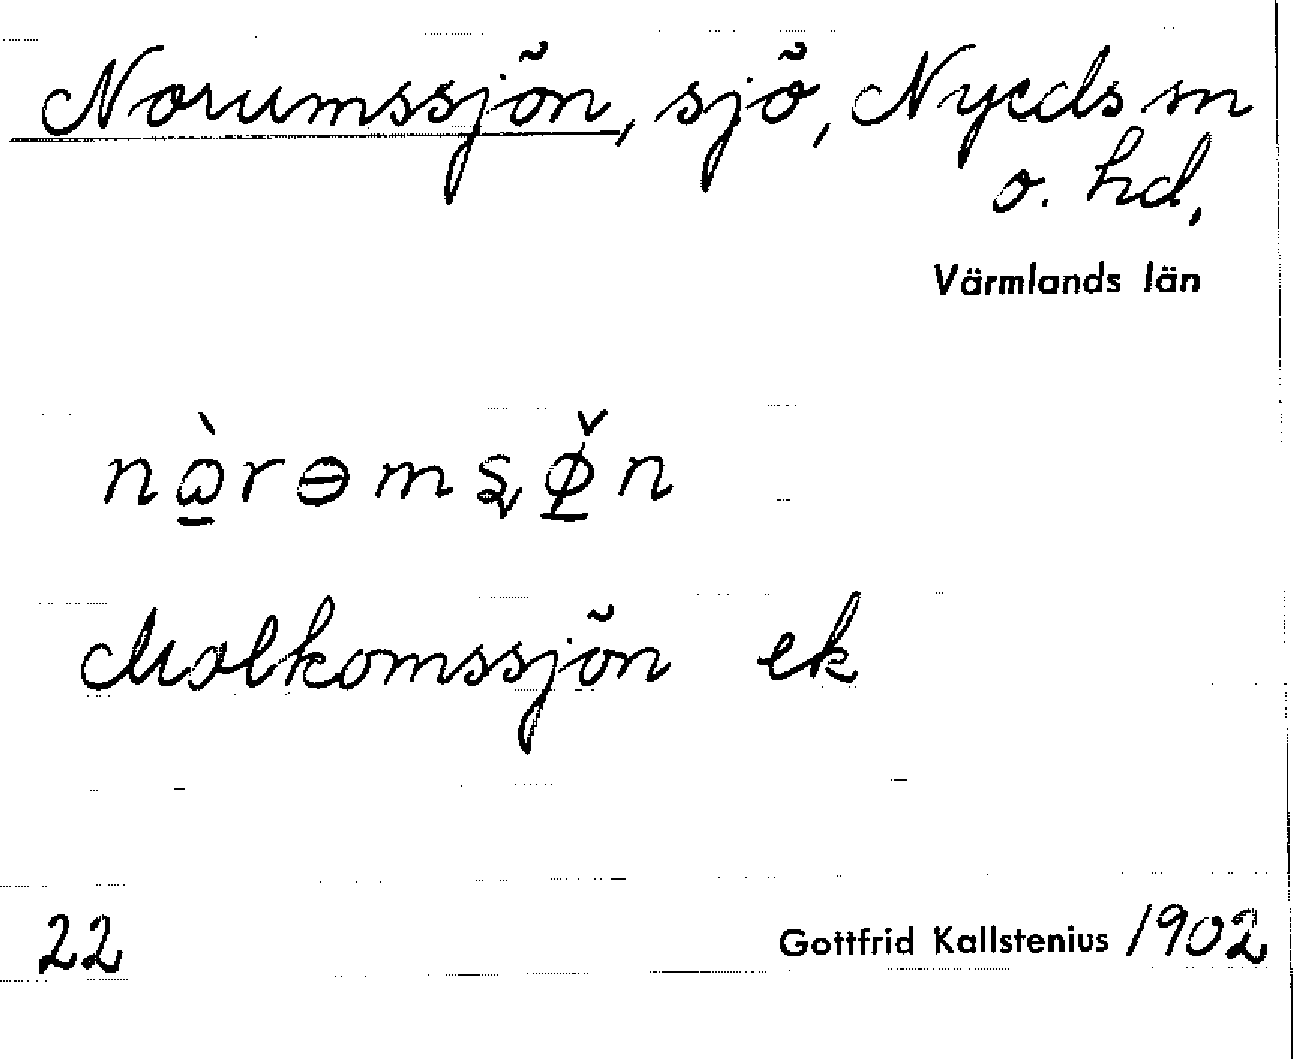 Norumssjön, sjö, Nyeds sn
o. hd,
Värmlands län
nɷ̠̀rɵmsφ̠̌n
Molkomssjön ek
22 Gottfrid Kallstenius 1902